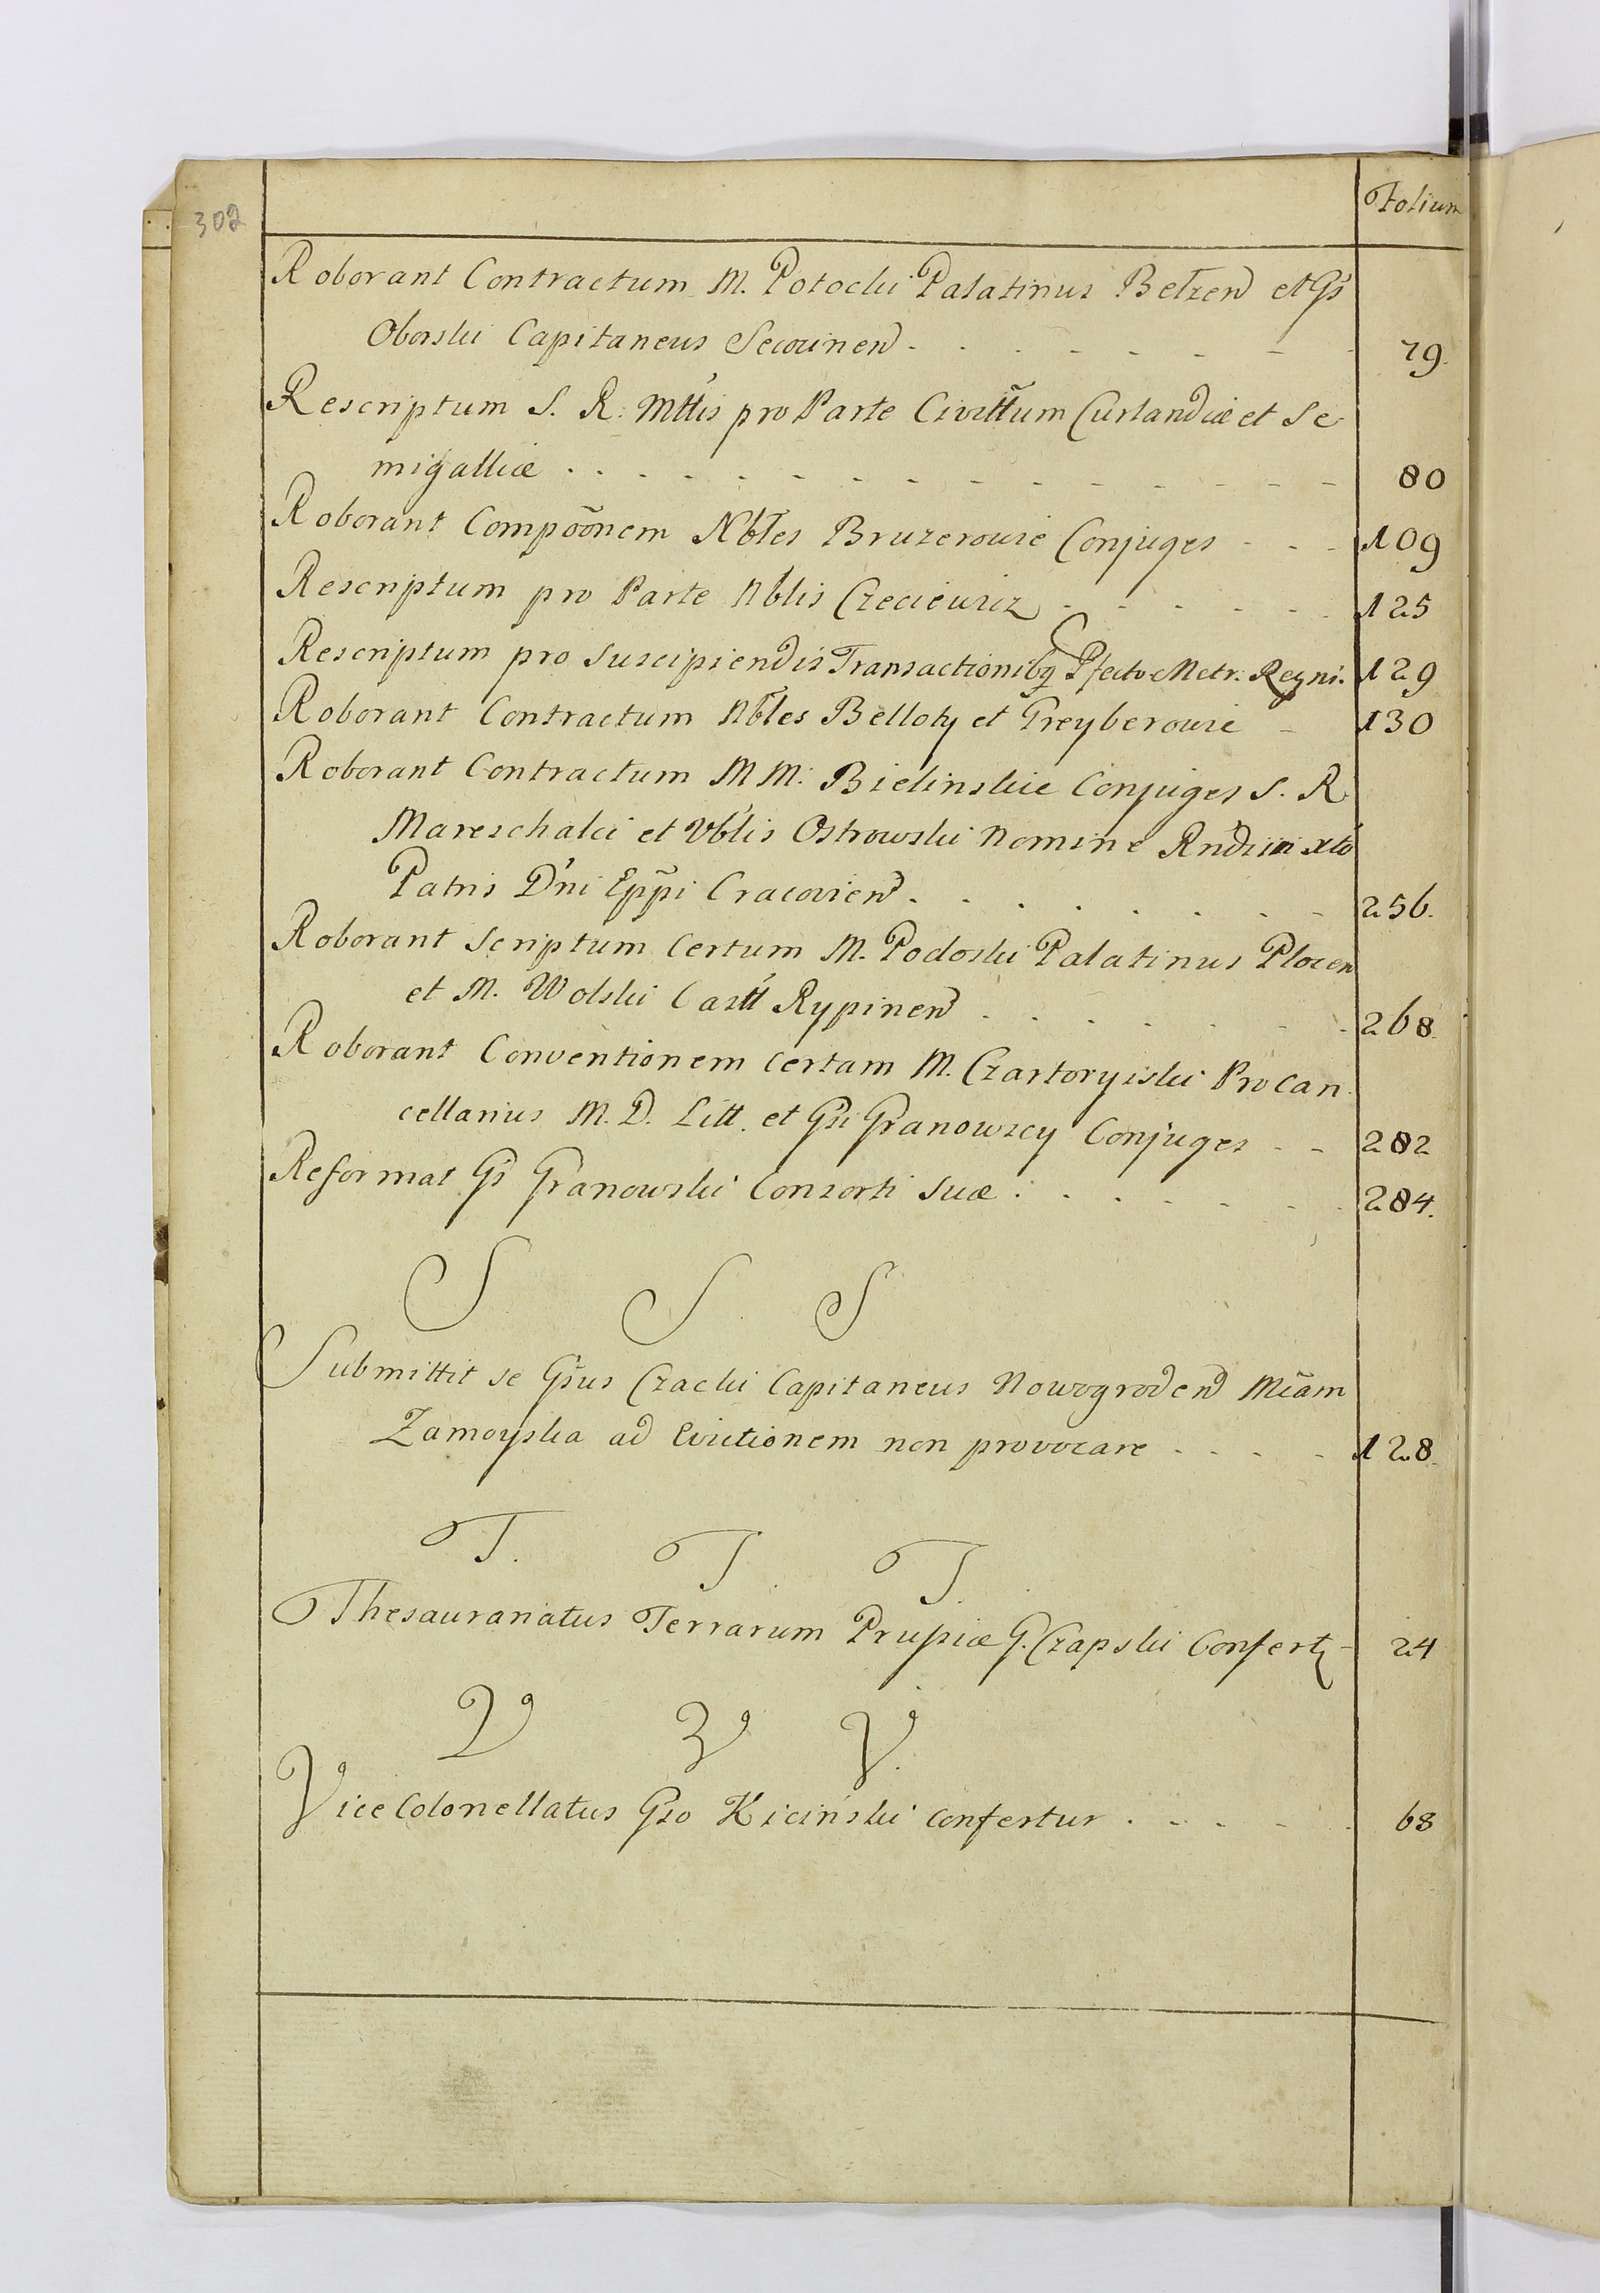 302
Folium
Roborant Contractum M. Potocki Palatinus Belzen et Gs
Oborski Capitaneus Secovinen 79.
Rescriptum S. R. Mttis pro Parte Civittum Curlandiæ et Se
migalliæ 80
Roborant Compõonem Nbles Bruzerowie Conjuges 109
Rescriptum pro Parte Nblis Czeciewicz 125
Rescriptum pro suscipiendis Transactionibq Pfecto Metr. Regni. 129
Roborant Contractum Nbles Belloty et Freyberowie 130
Roborant Contractum M M. Bielinskie Conjuges S. R
Mareschalci et Nblis Ostrowski Nomine Rndiss in xto
Patris D'ni Eppi Cracovien 256.
Roborant Scriptum Certum M. Podoski Palatinus Plocen
et M. Wolski Castt Rypinen 268.
Roborant Conventionem certam M. Czartoryiski Procan
cellarius M. D. Litt. et Gsi Granowscy Conjuges 282
Reformat Gs Granowski Consorti suæ 284.
S S S
Submittit se Gsus Czacki Capitaneus Nowogroden Mcam
Zamoyska ad Evictionem non provocare 128.
T. T. T.
Thesaurariatus Terrarum Prussiæ G. Czapski Confert 24
V V V.
Vice Colonellatus Gso Kiciński confertur 68